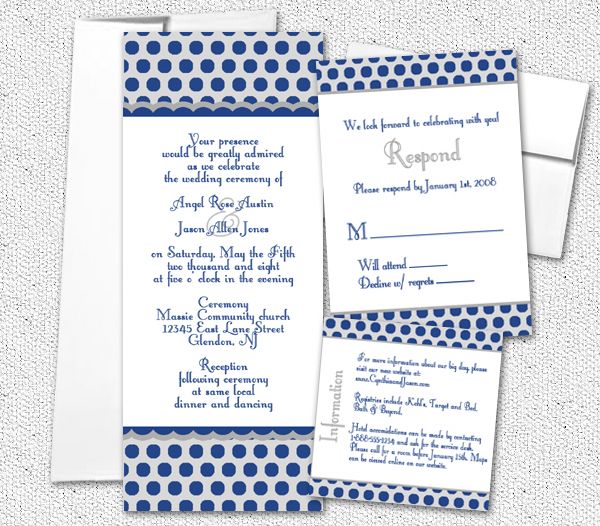 Your presence
would be greatly admired
as we celebrate
the wedding ceremony of
Angel Rose Austin
&
Jason Allen Jones
on Saturday, May the Fifth
two thousand and eight
at five o' clock in the evening
Ceremony
Massie Community church
12345 East Lane Street
Glendon, NJ
Reception
following ceremony
at same local
dinner and dancing
We look forward to celebrating with you!
Respond
Please respond by January 1st, 2008
M
Will attend
Decline w/ regrets
Information
For more information about our big day, please
visit our new website at:
www.CynthiaandJason.com
Registries include Kohl's, Target and Bed,
Bath & Beyond.
Hotel accomidations can be made by contacting
1-888-555-1234 and ask for the service desk.
Please call for a room before January 15th. Maps
can be viewed online on our website.